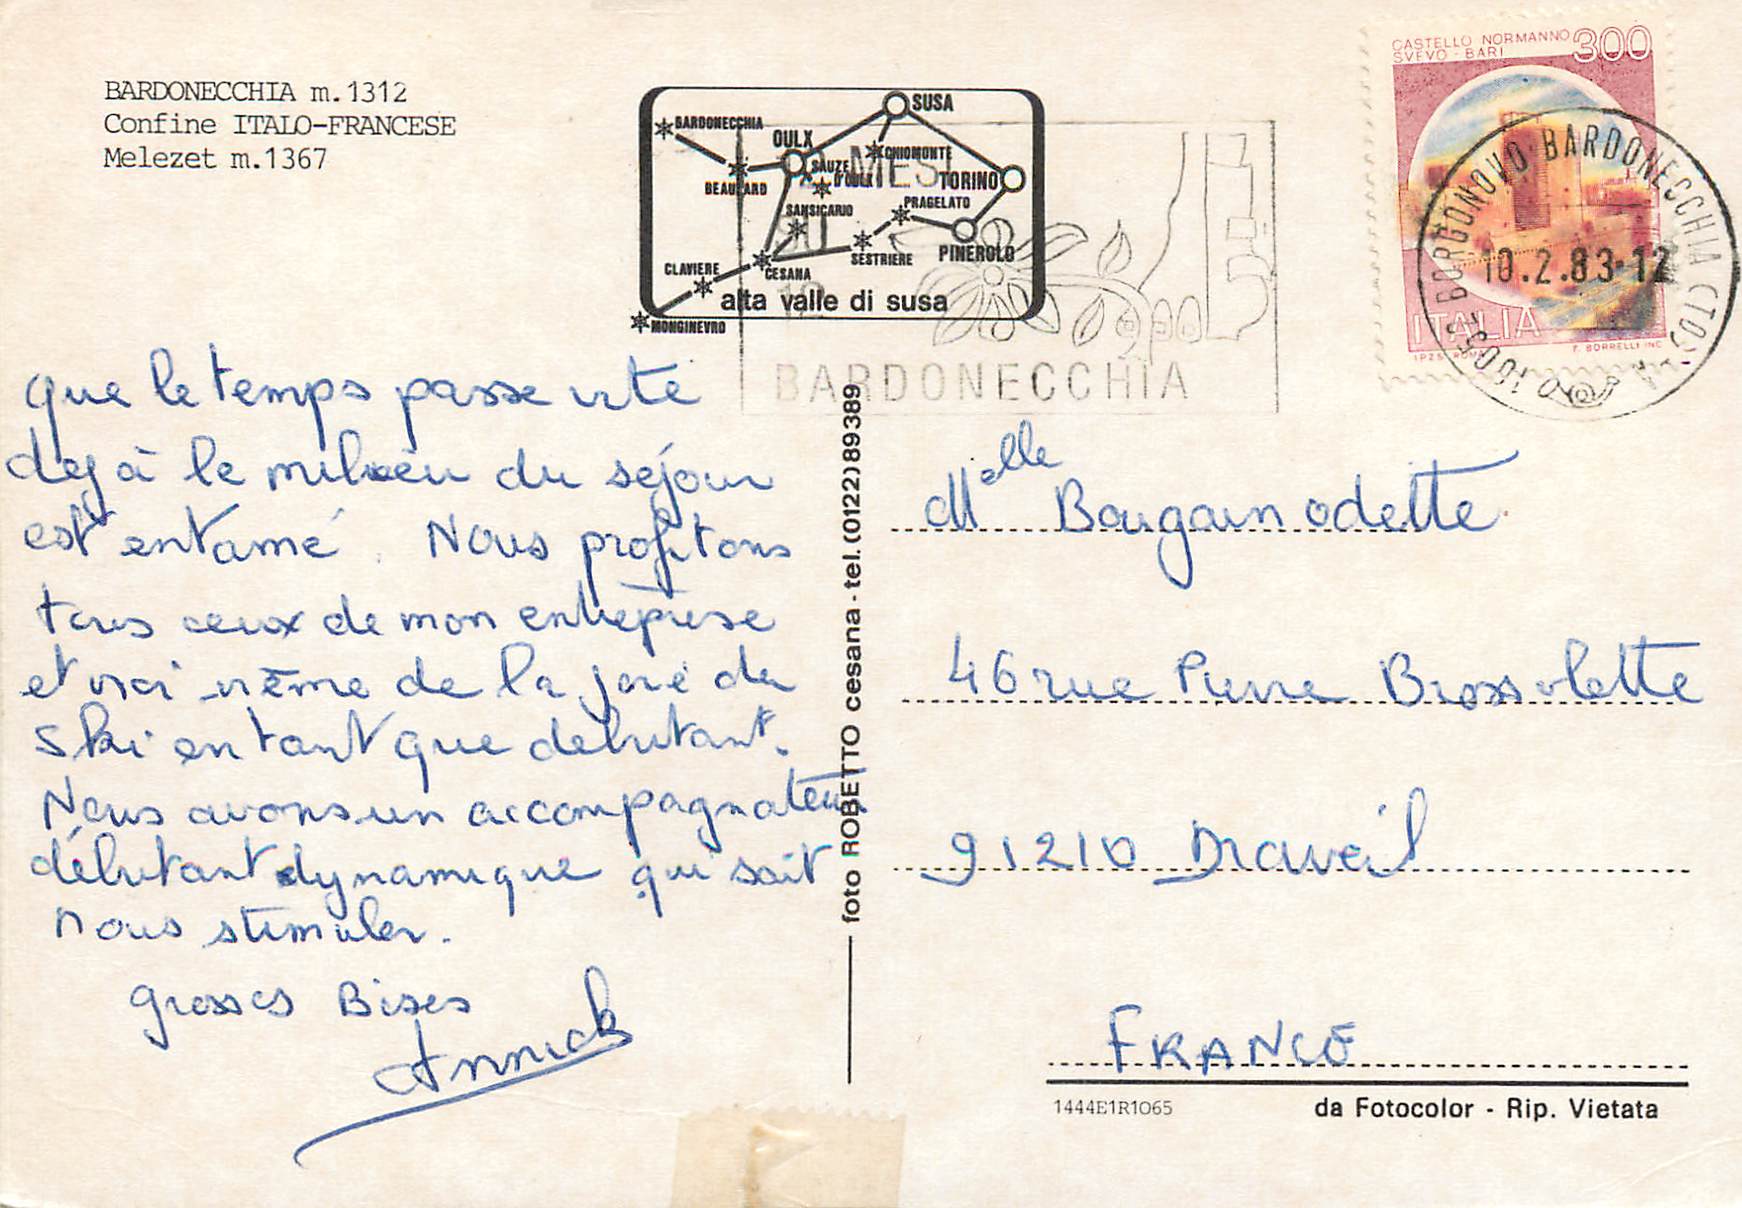 BARDONECCHIA m.1312
Confine ITALO-FRANCESE
Melezet m.1367
BARDONECCHIA
OULX
SUSA
BEAULARD
SAUZE
D'OULX
CHIOMONTE
TORINO
SANSICARIO
PRAGELATO
PINEROLO
SESTRIERE
CLAVIERE
CESANA
MONGINEVRO
alta valle di susa
MESI
BARDONECCHIA
CASTELLO NORMANNO
SVEVO - BARI
300
ITALIA
I.P.Z.S. ROMA
F. BORRELLI INC.
BORGONOVO BARDONECCHIA (TO)
10.2.83-12
que le temps passe vite
déjà le milieu du séjour
est entamé. Nous profitons
tous ceux de mon entreprise
et moi même de la joie du
ski en tant que débutant.
Nous avons un accompagnateur
débutant dynamique qui sait
nous stimuler.
Grosses Bises
Annick
foto ROBETTO cesana - tel. (0122) 89389
Melle Bougain odette
46 rue Pierre Brossolette
91210 Draveil
FRANCE
1444E1R1065
da Fotocolor - Rip. Vietata